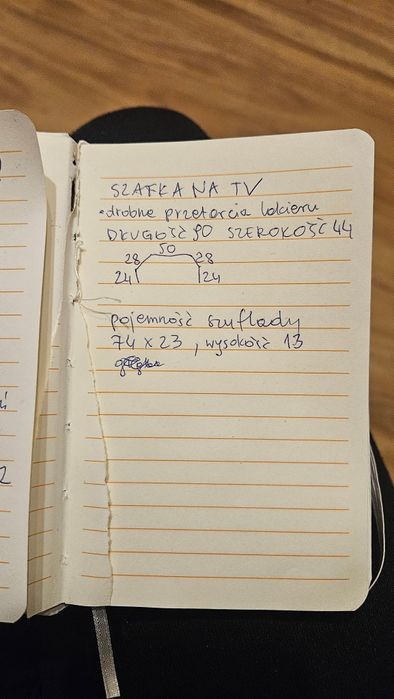 SZAFKA NA TV
• drobne przetarcia lakieru
DŁUGOŚĆ 90 SZEROKOŚĆ 44
50
28 28
24 24
pojemność szuflady
74 x 23, wysokość 13